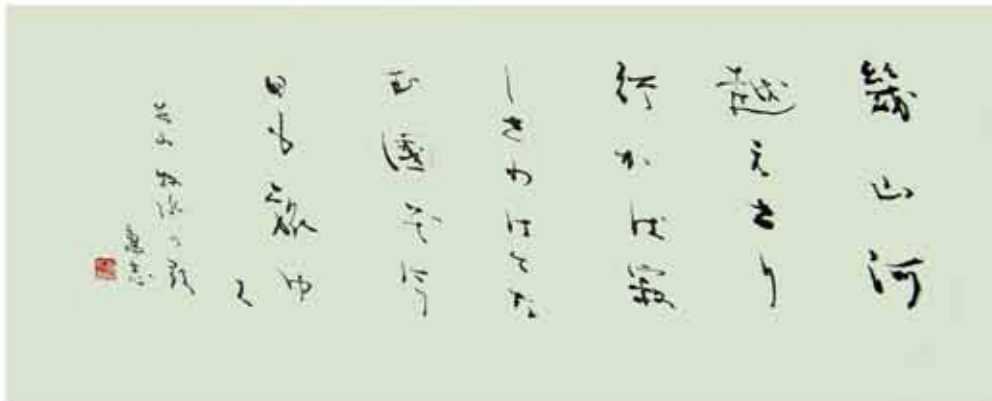 幾山河
越えさり
行かば寂
しさのはてな
む國ぞ今
日も旅ゆ
く
牧水の歌